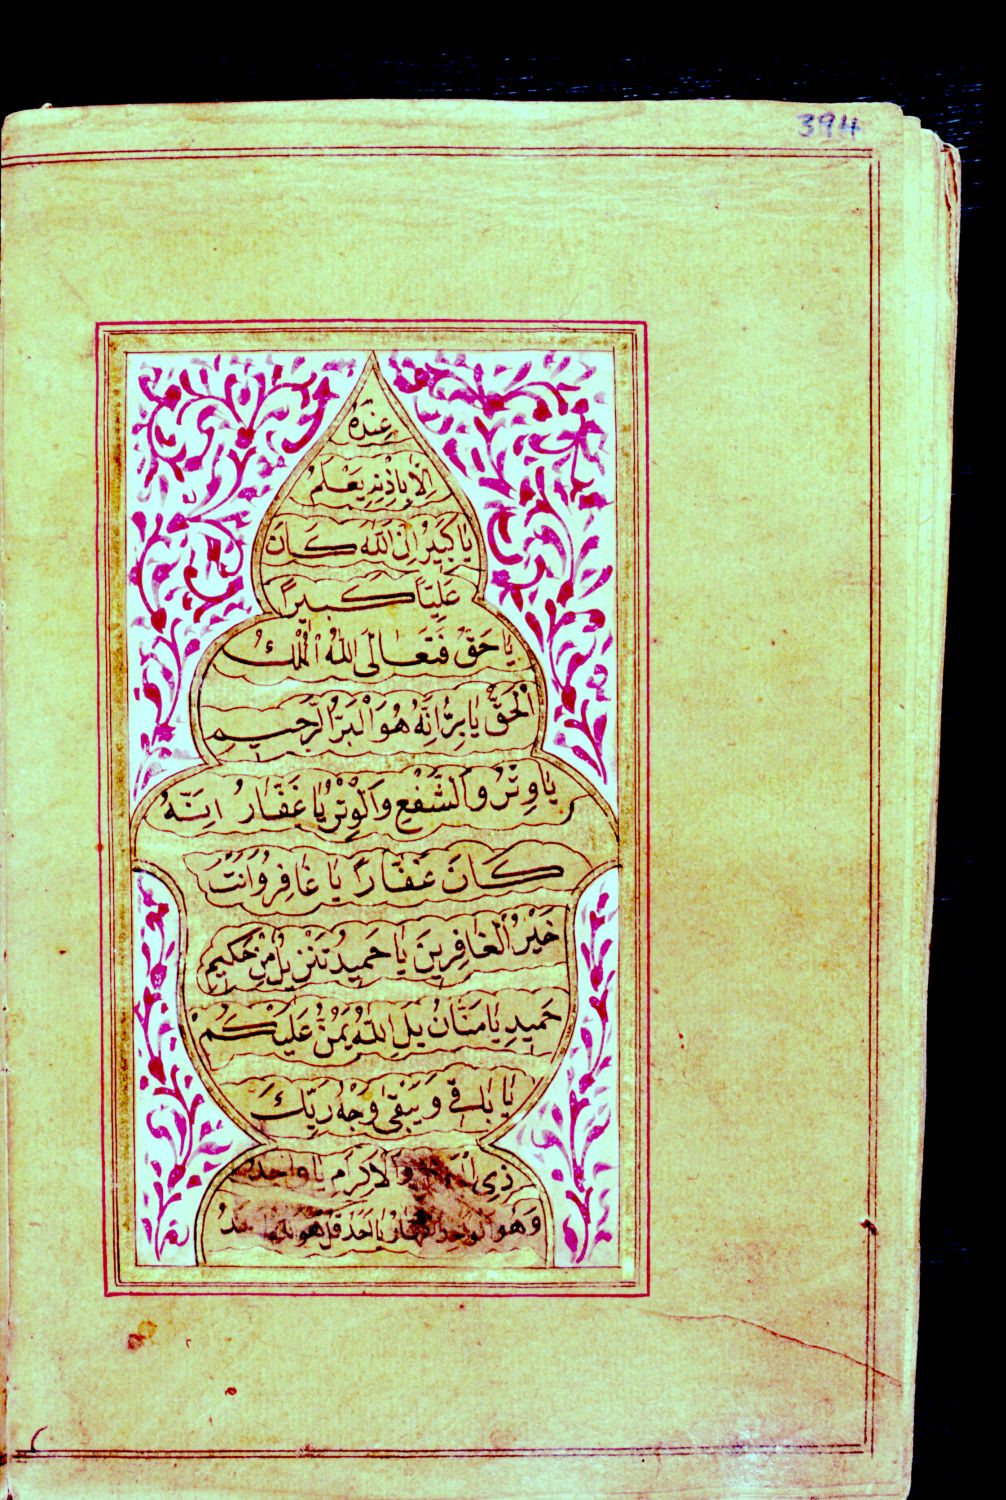 394
عِنْدَهُ
اِلَّا بِاِذْنِهِ يَعْلَمُ
يَا كَبِيرُ اِنَّ اللّٰهَ كَانَ
عَلِيًّا كَبِيرًا
يَا حَقُّ فَتَعَالَى اللّٰهُ الْمَلِكُ
الْحَقُّ يَا بَرُّ اِنَّهُ هُوَ الْبَرُّ الرَّحِيمُ
يَا وِتْرُ وَالشَّفْعِ وَالْوَتْرِ يَا غَفَّارُ اِنَّهُ
كَانَ غَفَّارًا يَا غَافِرُ وَاَنْتَ
خَيْرُ الْغَافِرِينَ يَا حَمِيدُ تَنْزِيلٌ مِنْ حَكِيمٍ
حَمِيدٍ يَا مَنَّانُ بَلِ اللّٰهُ يَمُنُّ عَلَيْكُمْ
يَا بَاقِي وَيَبْقَى وَجْهُ رَبِّكَ
ذِي وَالْاِكْرَامِ يَا وَاحِدُ
وَهُوَ الْوَاحِدُ الْقَهَّارُ يَا اَحَدُ قُلْ هُوَ